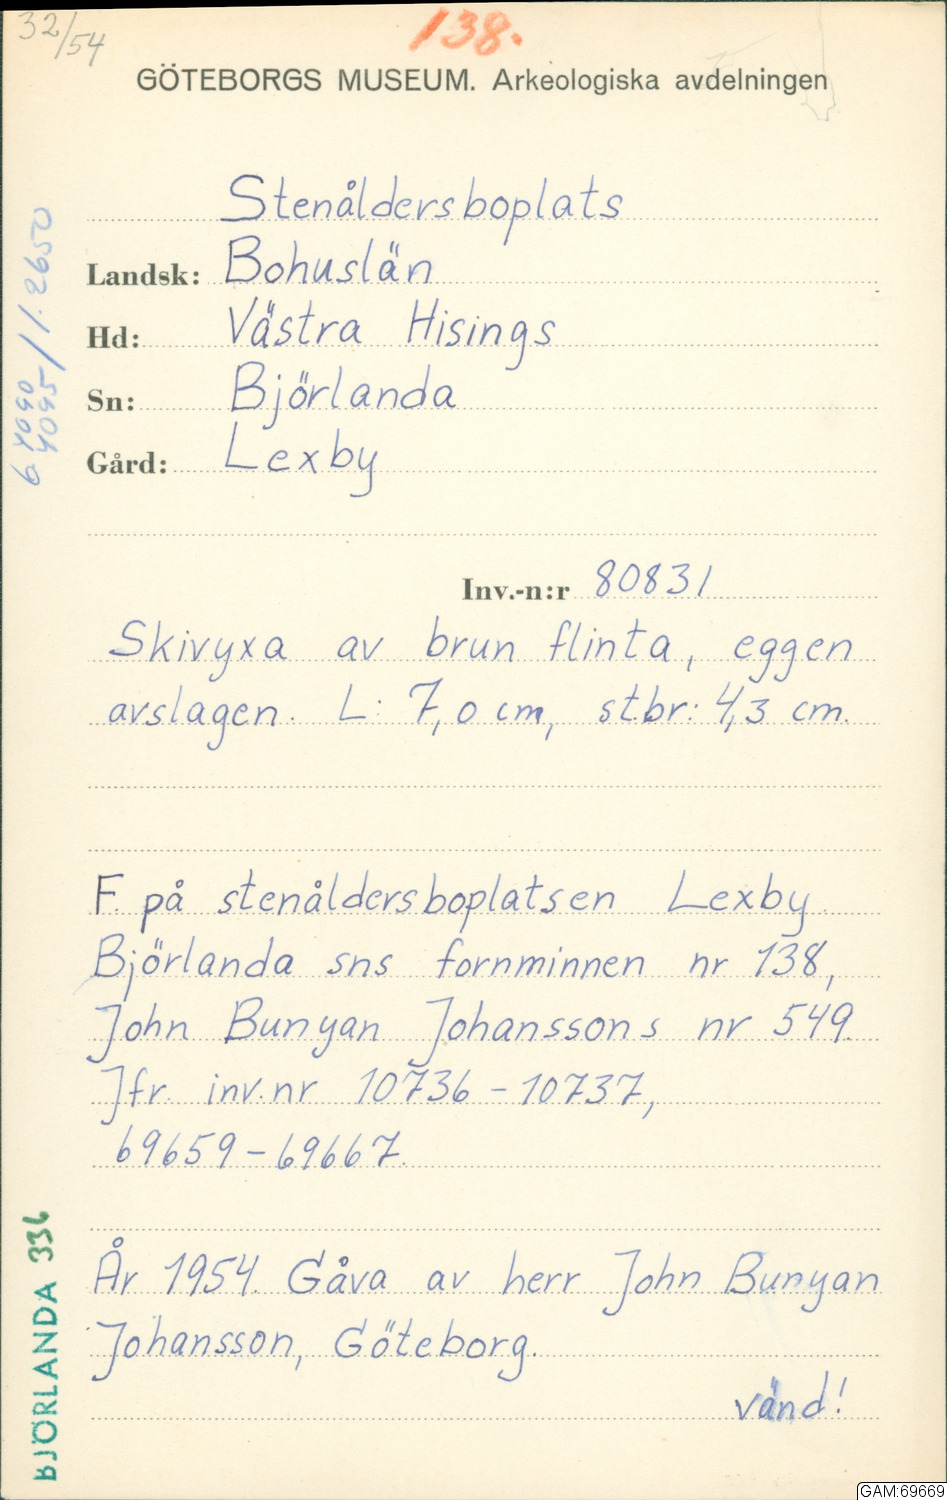 32/54
138.
GÖTEBORGS MUSEUM. Arkeologiska avdelningen
Stenåldersboplats
Landsk: Bohuslän
Hd: Västra Hisings
Sn: Björlanda
Gård: Lexby
Inv.-n:r 80831
Skivyxa av brun flinta, eggen
avslagen. L: 7,0 cm, st.br: 4,3 cm.
F. på stenåldersboplatsen Lexby
Björlanda sns fornminnen nr 138,
John Bunyan Johanssons nr 549.
Jfr. inv.nr 10736-10737,
69659-69667.
År 1954. Gåva av herr John Bunyan
Johansson, Göteborg.
vänd!
BJÖRLANDA 336
GAM:69669